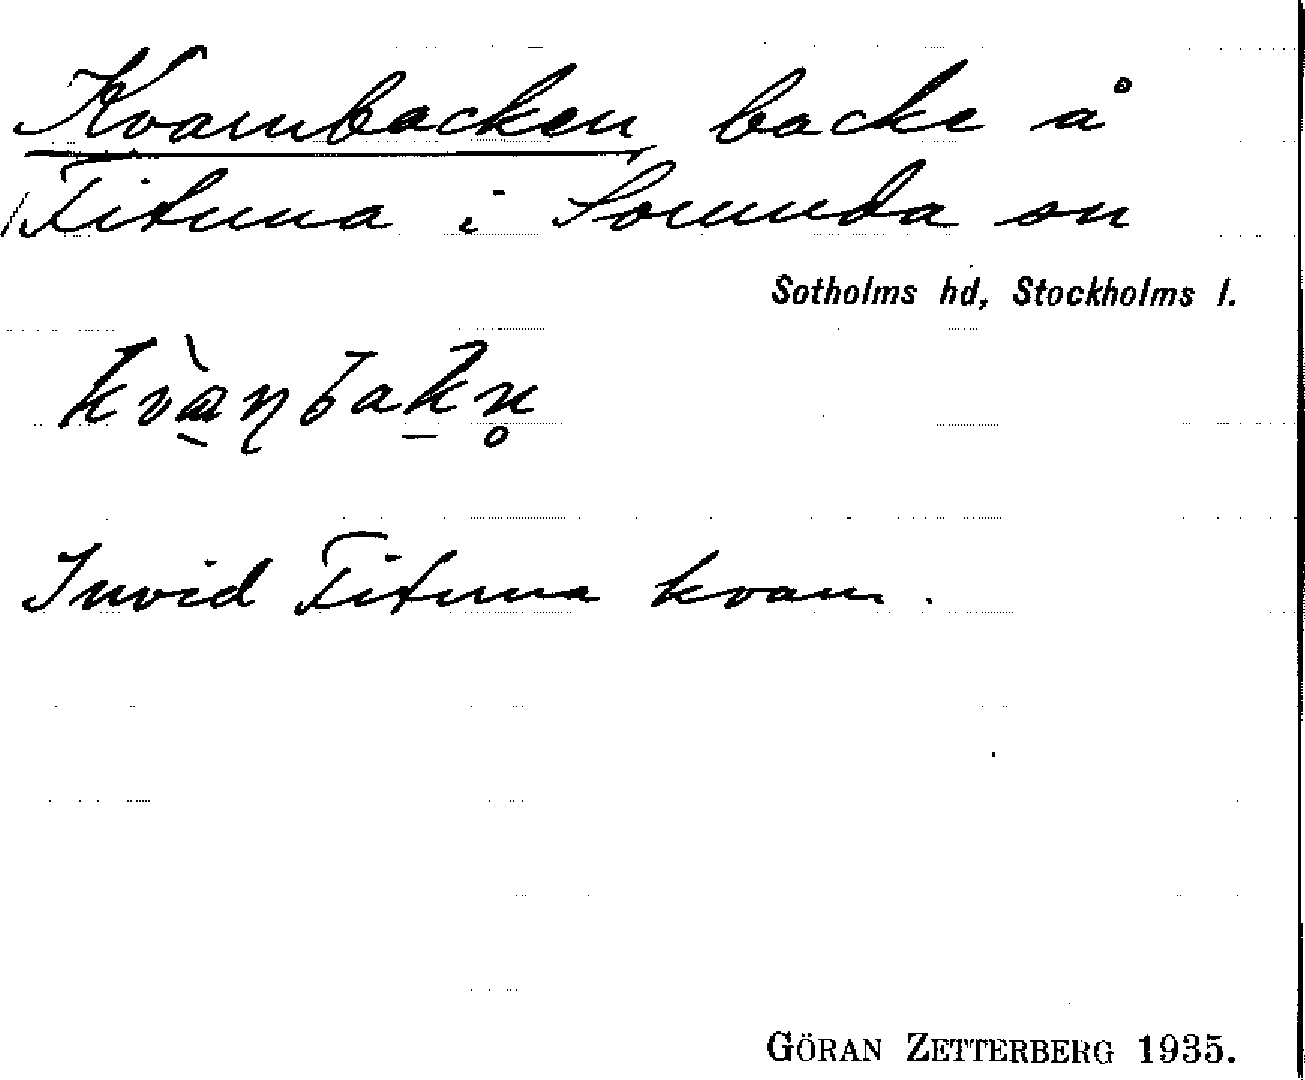 Kvarnbacken backe å
Fituna i Sorunda sn
Sotholms hd, Stockholms l.
Invid Fituna kvarn.
GÖRAN ZETTERBERG 1935.